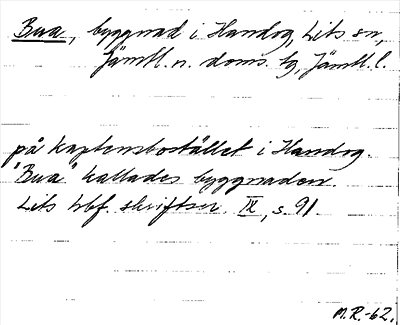 Bua, byggnad i Handog, Lits sn,
Jämtl. n. doms. tg, Jämtl. l.
på kaptensbostället i Handog.
"Bua" kallades byggnaden.
Lits hbf. skriftser. IX, s. 91.
M.R.-62.